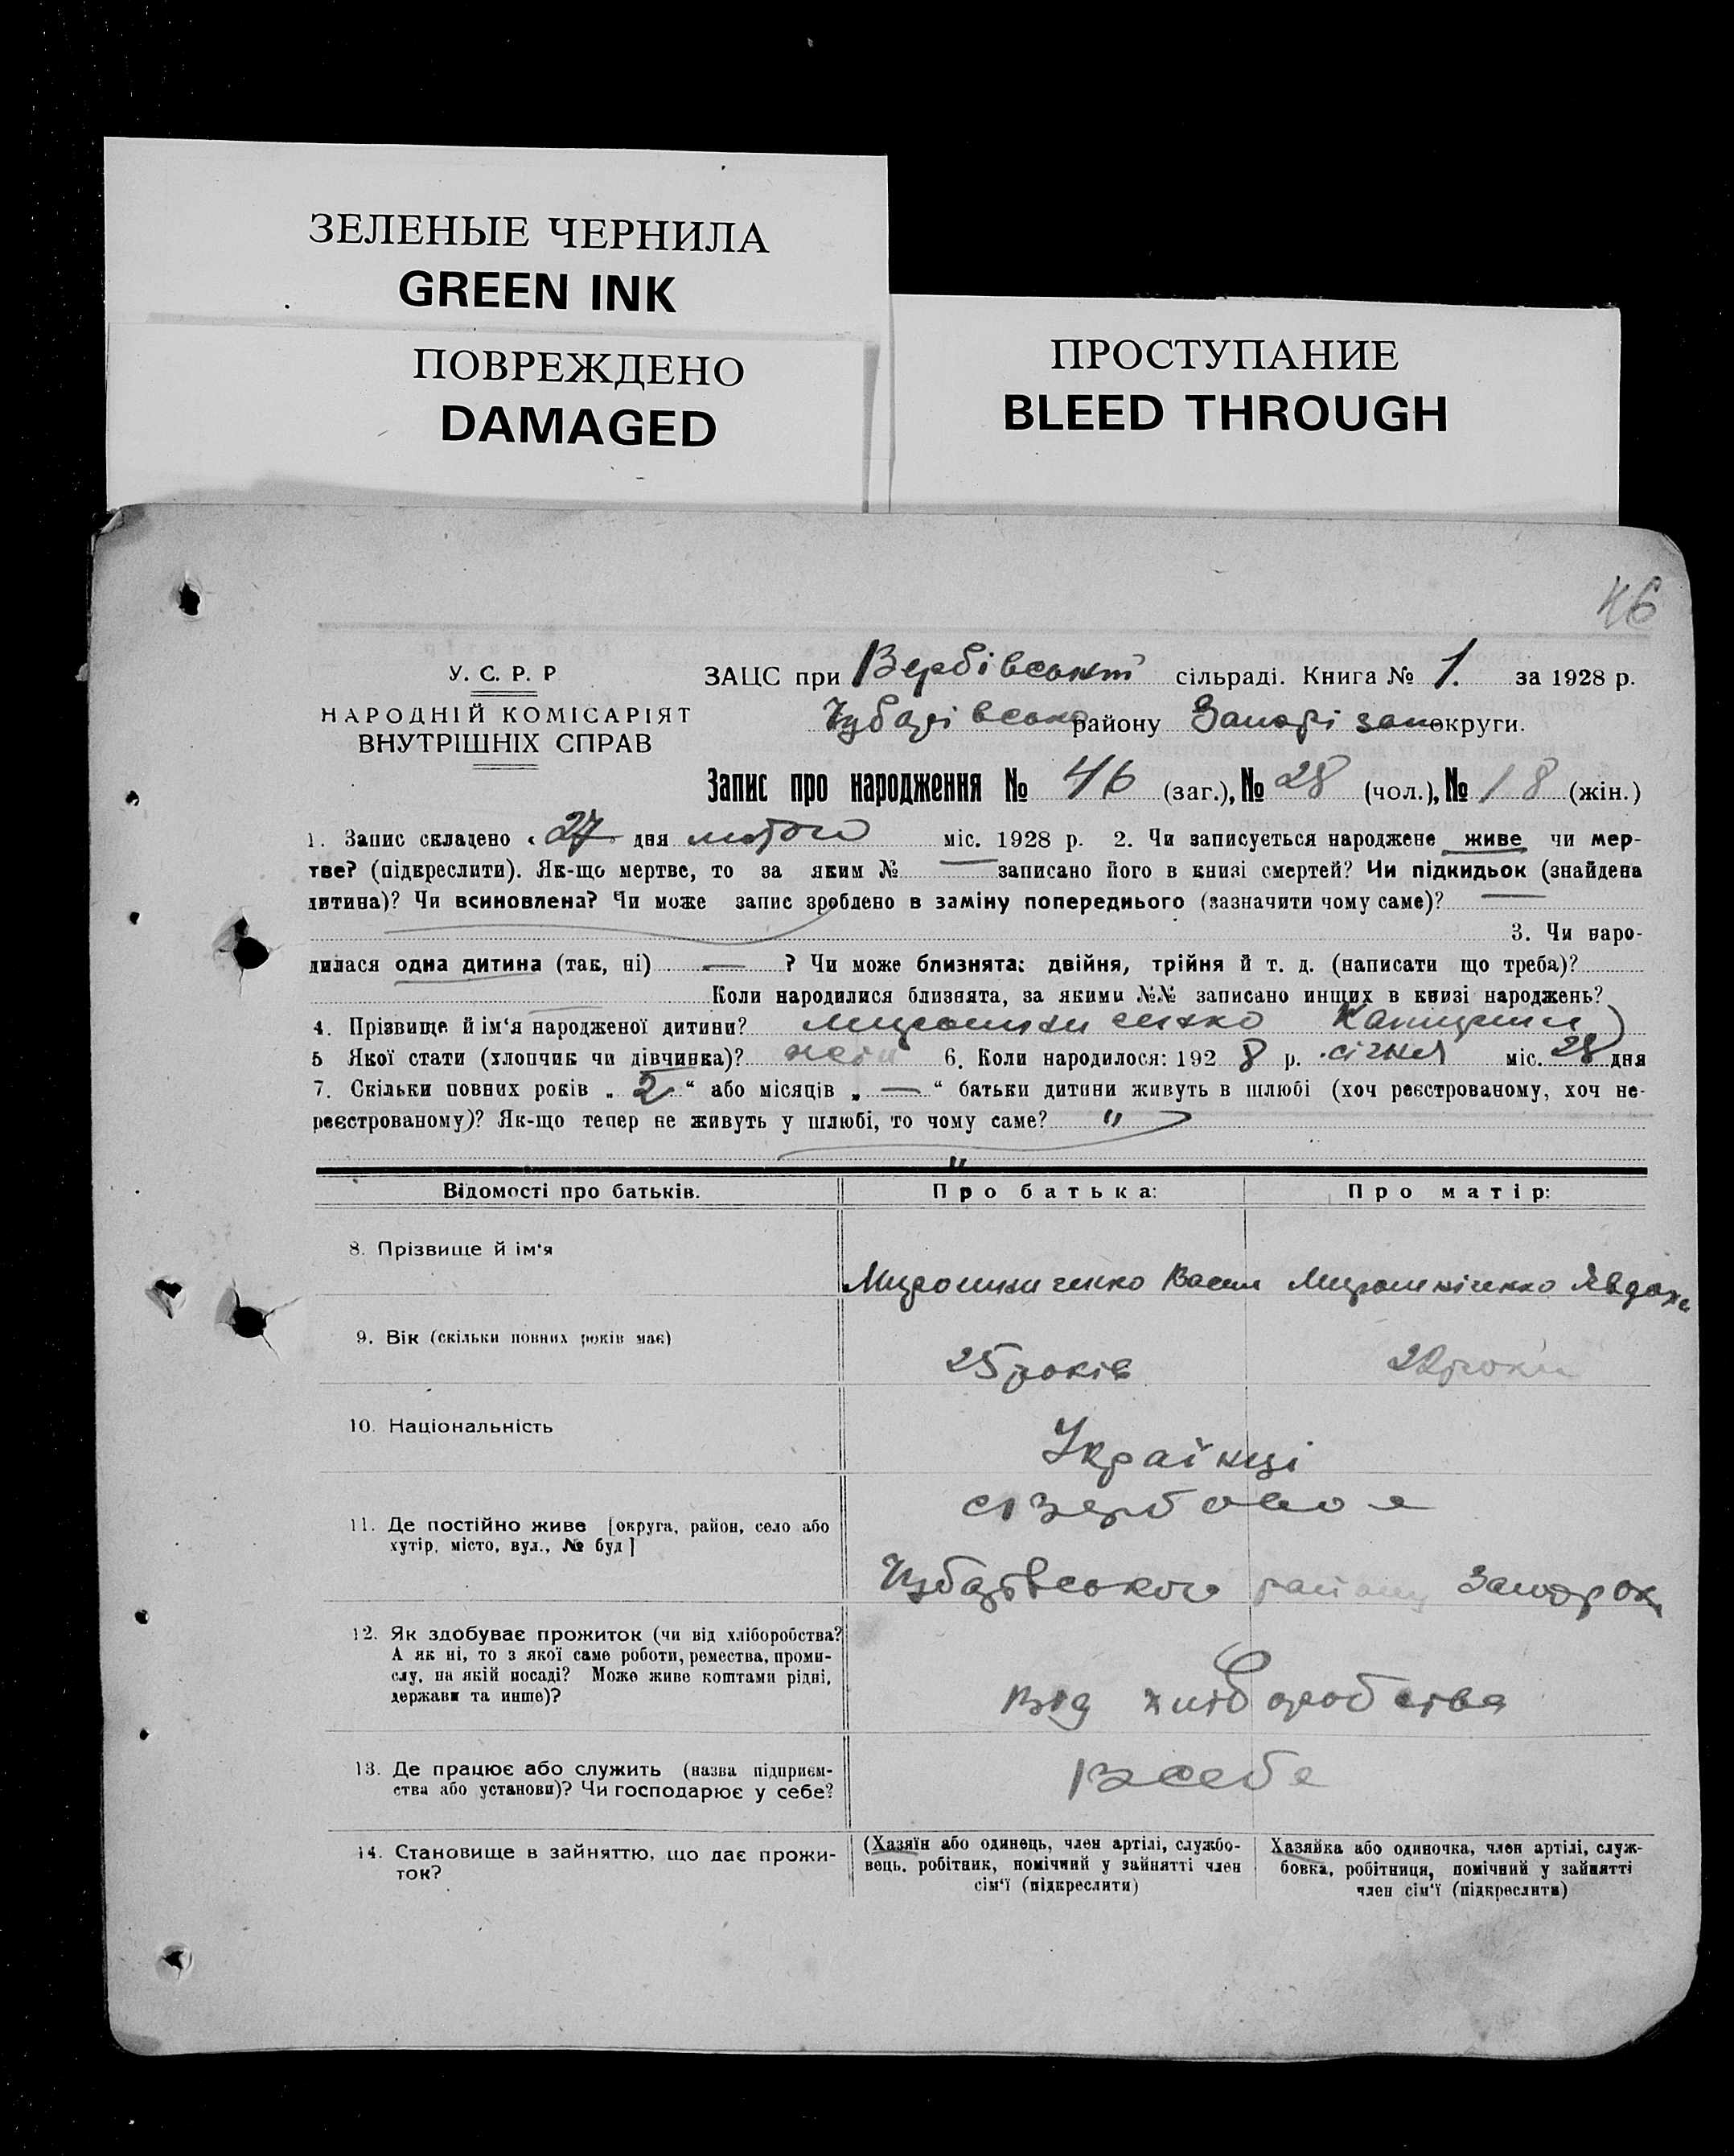 ЗЕЛЕНЫЕ ЧЕРНИЛА
GREEN INK
ПОВРЕЖДЕНО
DAMAGED
ПРОСТУПАНИЕ
BLEED THROUGH
46
У. С. Р. Р
НАРОДНІЙ КОМІСАРІЯТ
ВНУТРІШНІХ СПРАВ
ЗАЦС при Вербівській сільраді. Книга № 1. за 1928 р.
Чубарівсько району Запоріз округи.
Запис про народження № 46 (заг.), № 28 (чол.), № 18 (жін.)
1. Запис складено « 27 дня лютого міс. 1928 р. 2. Чи записується народжене живе чи мер-
тве? (підкреслити). Як-що мертве, то за яким № — записано його в книзі смертей? Чи підкидьок (знайдена
дитина)? Чи всиновлена? Чи може запис зроблено в заміну попереднього (зазначити чому саме)? —
3. Чи наро-
дилася одна дитина (так, ні) — ? Чи може близнята: двійня, трійня й т. д. (написати що треба)?
Коли народилися близнята, за якими №№ записано инших в книзі народжень?
4. Прізвище й ім'я народженої дитини? Мирошниченко
5 Якої стати (хлопчик чи дівчинка)? 6. Коли народилося: 192 8 р. січня міс. 28 дня
7. Скільки повних років „ 2 “ або місяців „ — “ батьки дитини живуть в шлюбі (хоч реєстрованому, хоч не-
реєстрованому)? Як-що тепер не живуть у шлюбі, то чому саме? "
"
Відомості про батьків. Про батька: Про матір:
8. Прізвище й ім'я
Мирошниченко Васил Мирошніченко Явдоха
9. Вік (скільки повних років має)
25 років 22 роки
10. Національність
Українці
11. Де постійно живе [округа, район, село або
хутір, місто, вул., № буд]
с Вербове
Чубарівського району Запор ок
12. Як здобуває прожиток (чи від хліборобства?
А як ні, то з якої саме роботи, ремества, проми-
слу, на якій посаді? Може живе коштами рідні,
держави та инше)?
від хліборобства
13. Де працює або служить (назва підприєм-
ства або установи)? Чи господарює у себе?
в себе
14. Становище в зайняттю, що дає прожи-
ток?
(Хазяїн або одинець, член артілі, службо-
вець, робітник, помічний у зайнятті член
сім'ї (підкреслити)
Хазяйка або одиночка, член артілі, служ-
бовка, робітниця, помічний у зайнятті
член сім'ї (підкреслити)